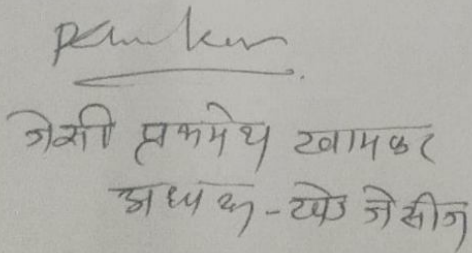 जेसी प्रकमेय खामकर
अध्यक्ष - खेड जेसीज